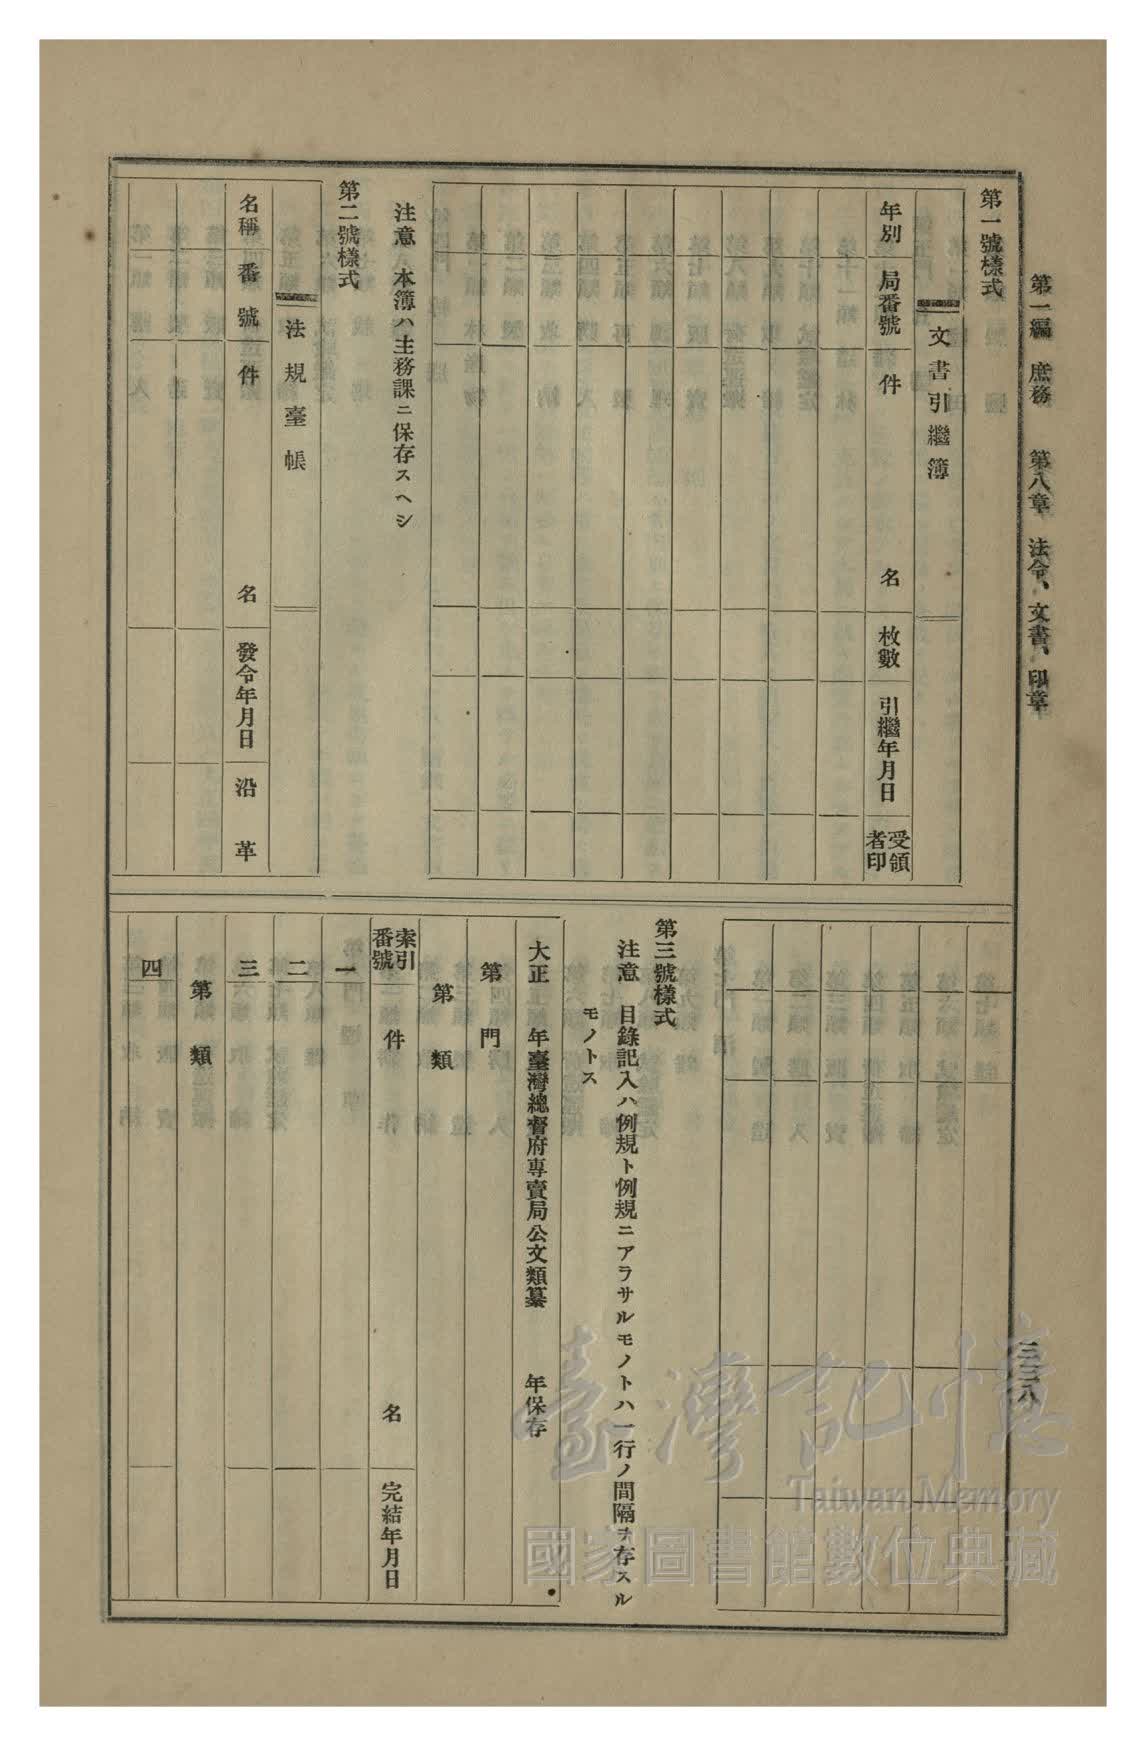 第一編　庶務　　第八章　法令、文書、印章
三二八
第一號樣式
文書引繼簿
年別
局番號
件　名
枚數
引繼年月日
受領者印
注意　本簿ハ主務課ニ保存スヘシ
第二號樣式
法規臺帳
名稱
番號
件　名
發令年月日
沿革
第三號樣式
注意　目錄記入ハ例規ト例規ニアラサルモノトハ一行ノ間隔ヲ存スル
モノトス
大正　年臺灣總督府專賣局公文類纂　年保存
第　門
第　類
索引番號
件　名
完結年月日
一
二
三
第　類
四
臺灣記憶
Taiwan Memory
國家圖書館數位典藏